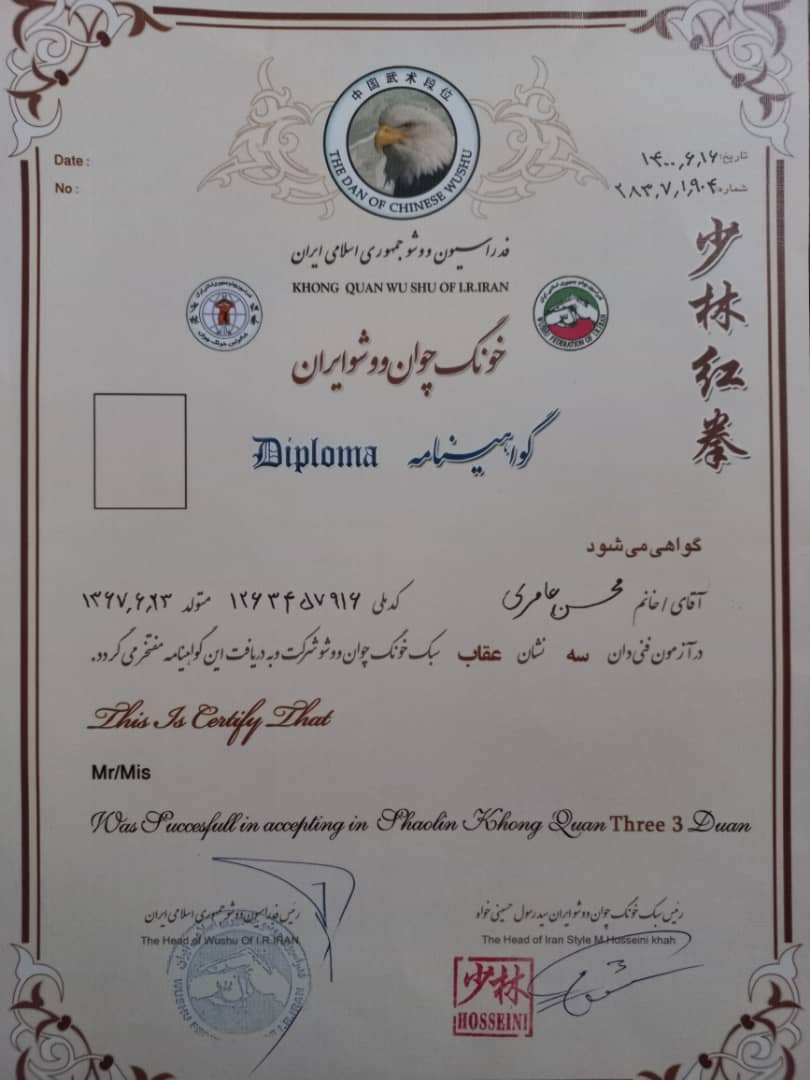 中国武术段位
THE DAN OF CHINESE WUSHU
Date :
No :
تاریخ: ۱۴۰۰٫۶٫۱۶
شماره: ۲۸۳٫۷٫۱٫۹۰۴
فدراسیون ووشو جمهوری اسلامی ایران
KHONG QUAN WU SHU OF I.R.IRAN
WUSHU FEDERATION OF I.R.IRAN
少林红拳
خونگ چوان ووشو ایران
Diploma گواهینامه
گواهی می شود
آقای / خانم محسن عامری کدملی ۱۲۶۳۴۵۷۹۱۶ متولد ۱۳۶۷٫۶٫۲۳
در آزمون فنی دان سه نشان عقاب سبک خونگ چوان ووشو شرکت و به دریافت این گواهینامه مفتخر می گردد.
This Is Certify That
Mr/Mis
Was Succesfull in accepting in Shaolin Khong Quan Three 3 Duan
رئیس فدراسیون ووشو جمهوری اسلامی ایران
The Head of Wushu Of I.R.IRAN
رئیس سبک خونگ چوان ووشو ایران سید رسول حسینی خواه
The Head of Iran Style M.Hosseini khah
少林
HOSSEINI